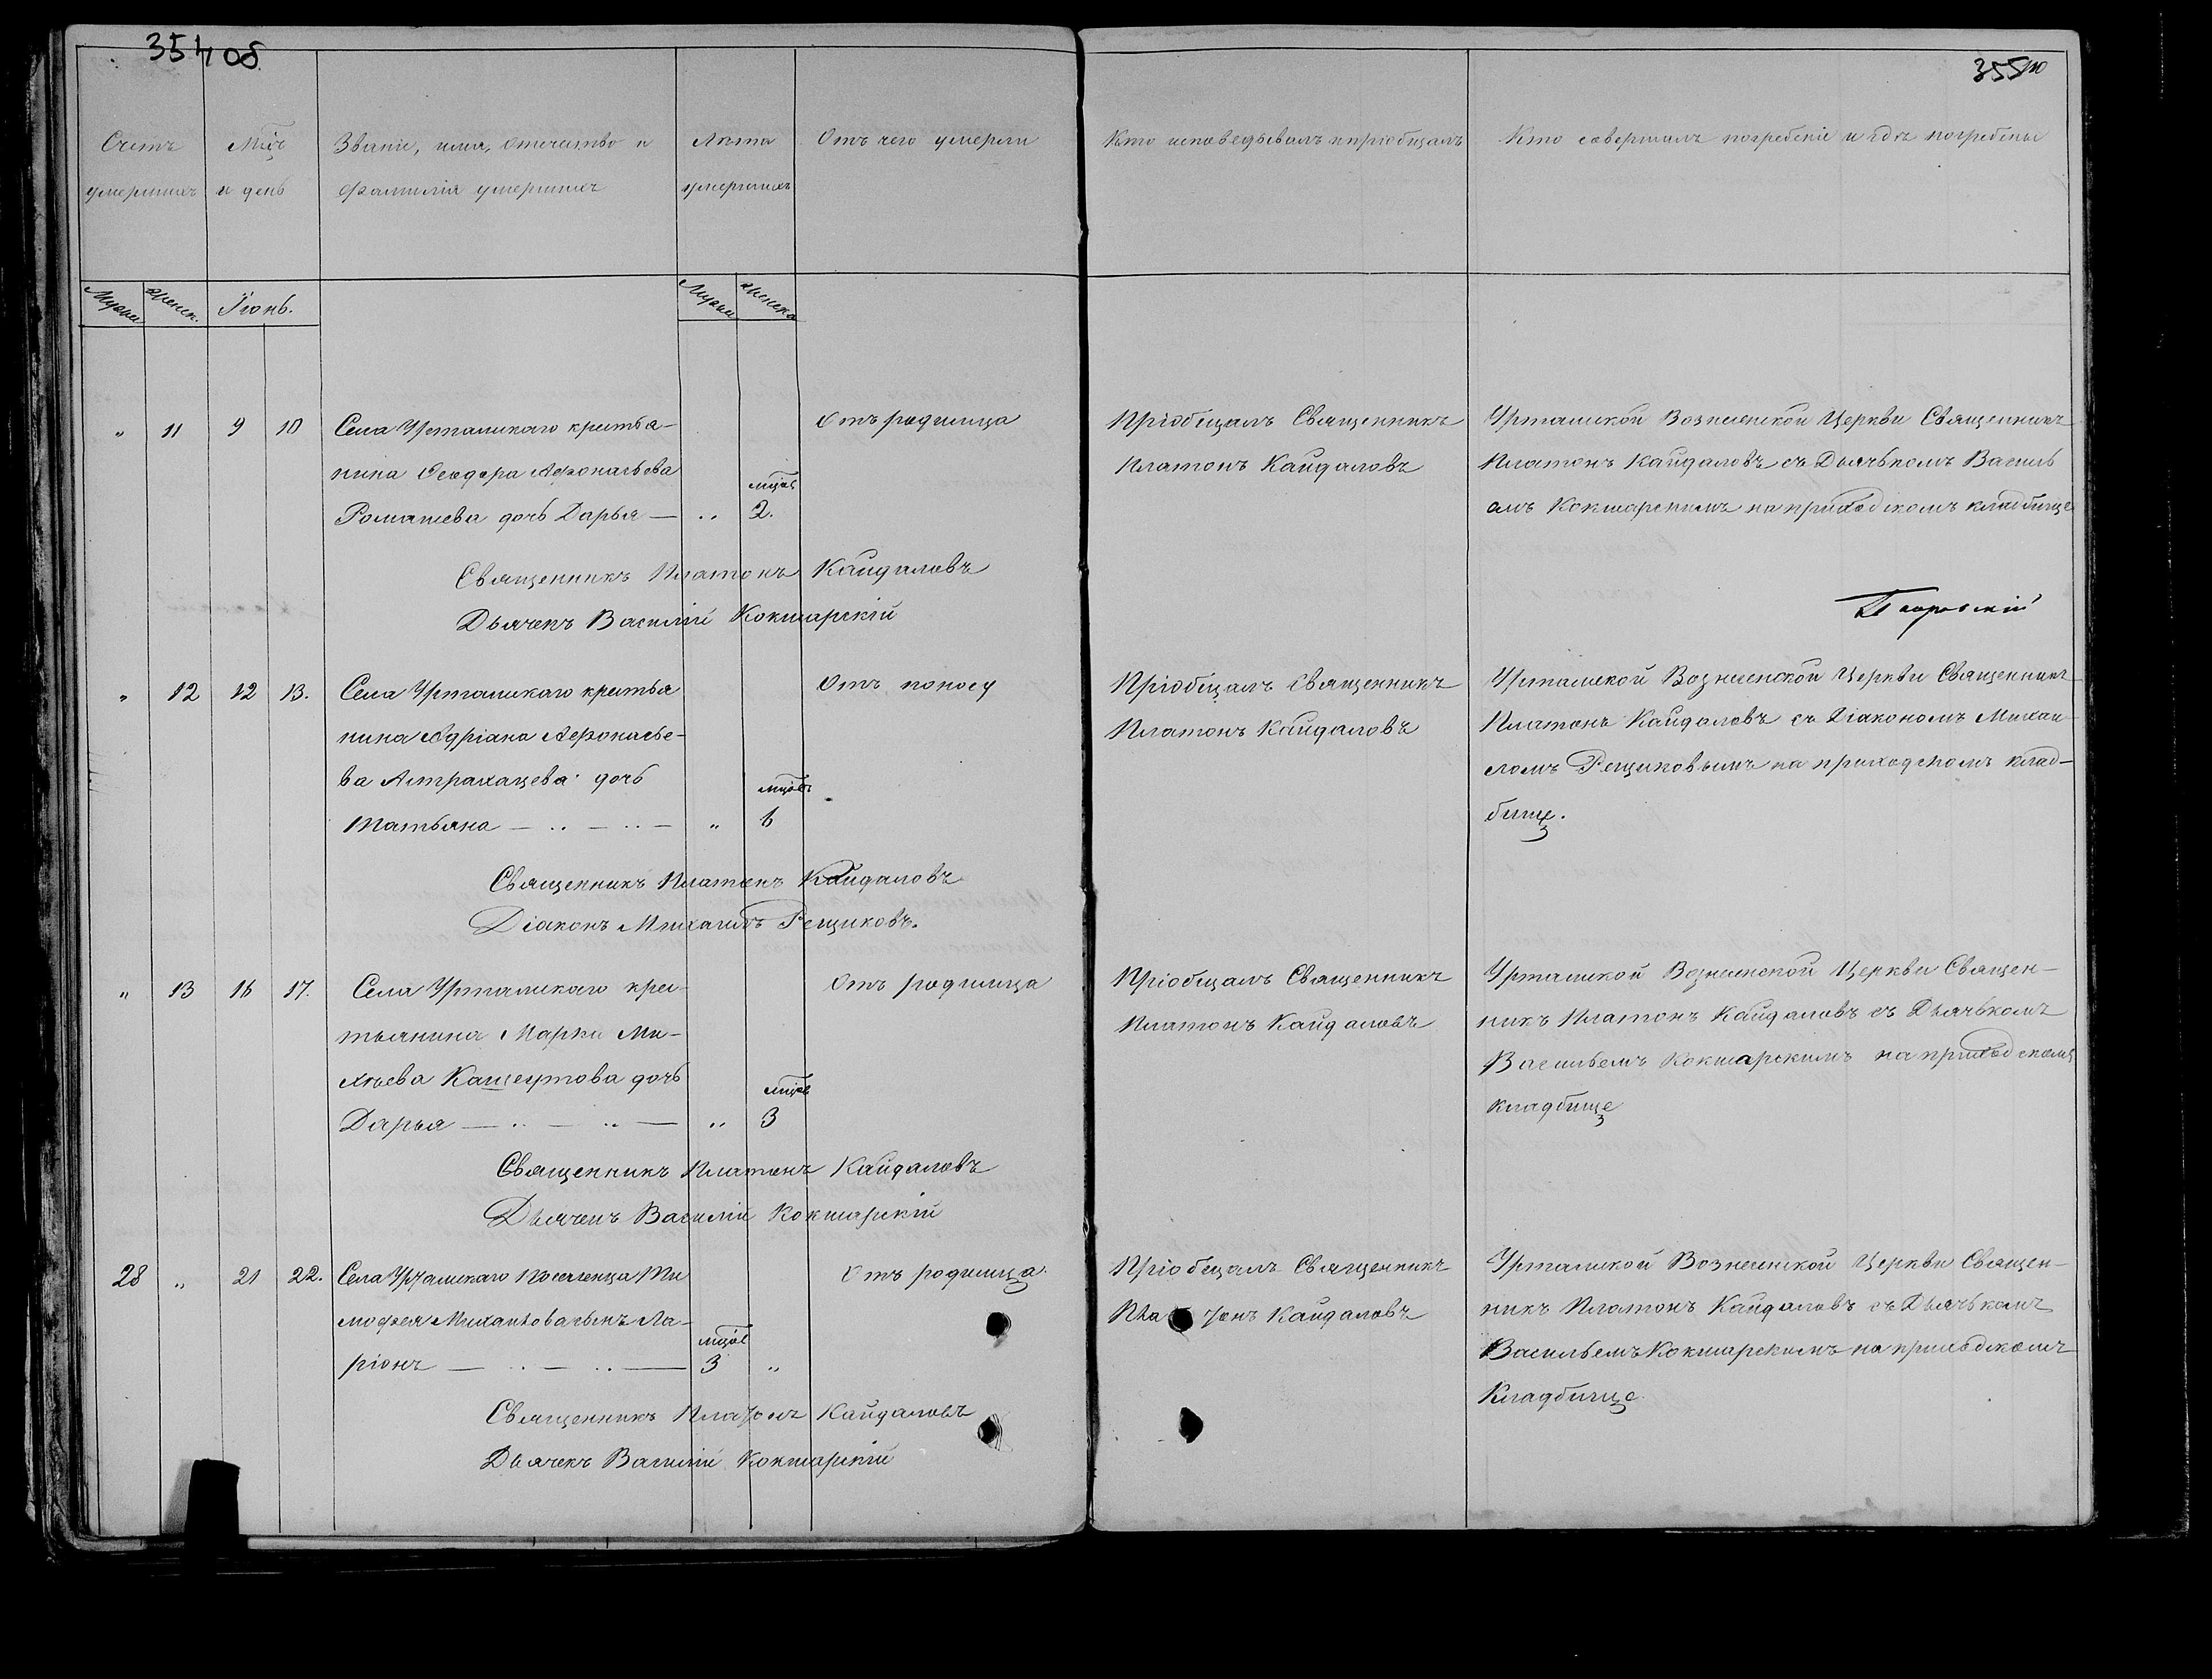 354 об.
355
Счетъ
умершихъ
Мцъ
и день
Званіе, имя, отчество и
фамилія умершихъ
Лѣта
умершихъ
Отъ чего умерли
Кто исповедывалъ и пріобщалъ
Кто совершалъ погребеніе и гдѣ погребены
Мужск. женск. Іюнь.
Мужск женска
" 11 9 10 Села Уртамскаго крестья-
нина Ѳеодора Аѳонасьева
мцов
Ромашева дочь Дарья — .. 2.
Отъ родимца
Пріобщалъ Священникъ
Платонъ Кайдаловъ
Уртамской Вознесенской Церкви Священникъ
Платонъ Кайдаловъ съ Дьячькомъ Василь
емъ Кокшарскимъ на приходскомъ кладбище
Священникъ Платонъ Кайдаловъ
Дьячекъ Василій Кокшарскій
" 12 12 13. Села Уртамскаго крестья
нина Адріана Аѳонасье-
ва Астраханцева дочь
мцовъ
Татьяна — .. — .. — " 6
Отъ поносу
Пріобщалъ Священникъ
Платонъ Кайдаловъ
Уртамской Вознесенской Церкви Священникъ
Платонъ Кайдаловъ съ Діакономъ Михаи-
ломъ Рещиковымъ на приходскомъ клад-
бище.
Священникъ Платонъ Кайдаловъ
Діаконъ Михаилъ Рещиковъ.
" 13 16 17. Села Уртамскаго крес-
тьянина Марка Ми-
хѣева дочь
мцов
Дарья — .. — .. — .. 3
Отъ родимца
Пріобщалъ Священникъ
Платонъ Кайдаловъ
Уртамской Вознесенской Церкви Священ-
никъ Платонъ Кайдаловъ съ Дьячькомъ
Васильемъ Кокшарскимъ на приходскомъ
кладбище
Священникъ Платонъ Кайдаловъ
Дьячекъ Василій Кокшарскій
28 " 21 22. Села Уртамскаго поселенца Ти
мофея Михайлова сынъ Ла-
мцов
ріонъ — .. — .. — 3 "
Отъ родимца.
Пріобщалъ Священникъ
Платонъ Кайдаловъ
Уртамской Вознесенской Церкви Священ-
никъ Платонъ Кайдаловъ съ Дьячькомъ
Васильемъ Кокшарскимъ на приходскомъ
Кладбище.
Священникъ Платонъ Кайдаловъ
Дьячекъ Василій Кокшарскій